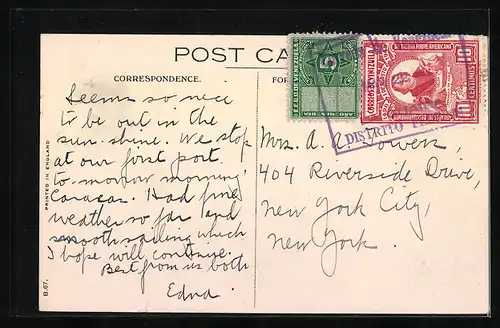 POST CA
CORRESPONDENCE.
FOR
Seems so nice
to be out in the
sun-shine. We stop
at our first port
to morrow morning
Caracas. Had fine
weather so far and
smooth sailing which
I hope will continue.
Best from us both
Edna.
Mrs. A. Bowers,
404 Riverside Drive,
New York City,
New York.
PRINTED IN ENGLAND
B.67.
5
CORREOS VENEZUELA
10
CENTIMOS
10
DISTRITO